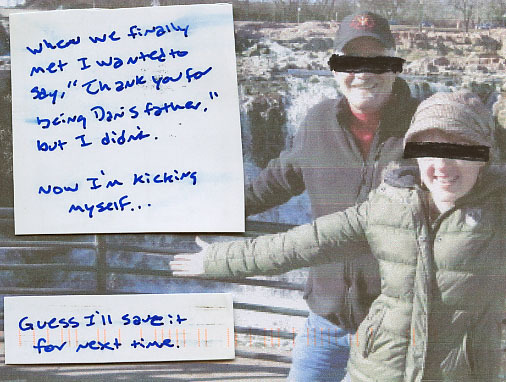 When we finally
met I wanted to
say, "Thank you for
being Dan's father."
but I didn't.
Now I'm kicking
myself...
Guess I'll save it
for next time.